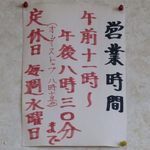 営業時間
午前十一時〜
午後八時三〇分まで
(オーダーストップ 八時十五分)
定休日 毎週水曜日